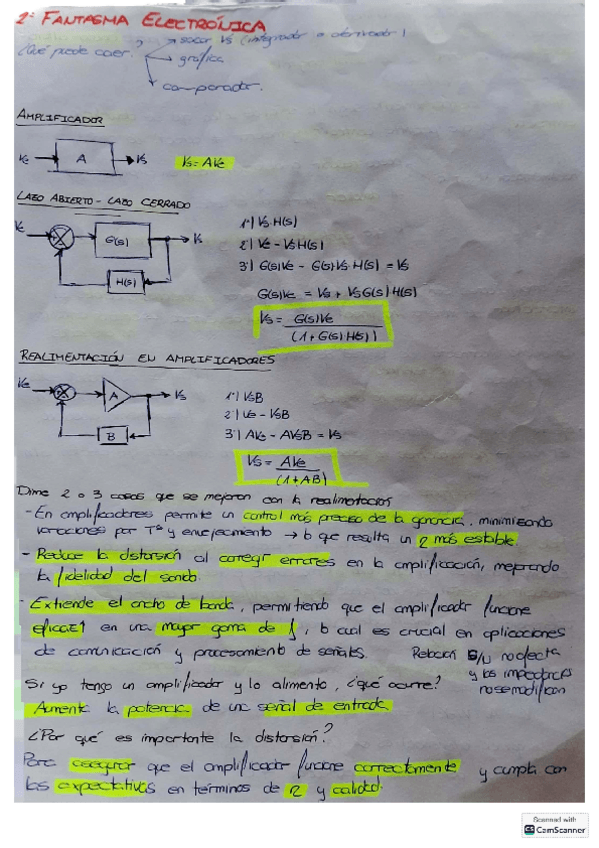 2º FANTASMA ELECTRÓNICA
¿Qué puede caer? sacar Vs (integrador o derivador)
gráfica
comparador.
AMPLIFICADOR
Ve A Vs Vs = AVe
LAZO ABIERTO - LAZO CERRADO
Ve G(s) Vs
H(s)
1º) Vs H(s)
2º) Ve - Vs H(s)
3º) G(s)Ve - G(s)Vs H(s) = Vs
G(s)Ve = Vs + Vs G(s) H(s)
Vs = G(s)Ve
(1 + G(s) H(s))
REALIMENTACIÓN EN AMPLIFICADORES
Ve A Vs
B
1º) VsB
2º) Ve - VsB
3º) AVe - AVsB = Vs
Vs = AVe
(1 + AB)
Dime 2 o 3 cosas que se mejoran con la realimentación
- En amplificadores permite un control más preciso de la ganancia, minimizando
variaciones por Tª y envejecimiento → lo que resulta un más estable.
- Reduce la distorsión al corregir errores en la amplificación, mejorando
la fidelidad del sonido.
- Extiende el ancho de banda, permitiendo que el amplificador funcione
eficaz en una mayor gama de f, lo cual es crucial en aplicaciones
de comunicación y procesamiento de señales. Relación no afecta
y las impedancias
no se modifican
Si yo tengo un amplificador y lo alimento, ¿qué ocurre?
Aumenta la potencia de una señal de entrada.
¿Por qué es importante la distorsión?
Para asegurar que el amplificador funcione correctamente y cumpla con
las expectativas en términos de y calidad.
Scanned with
CamScanner